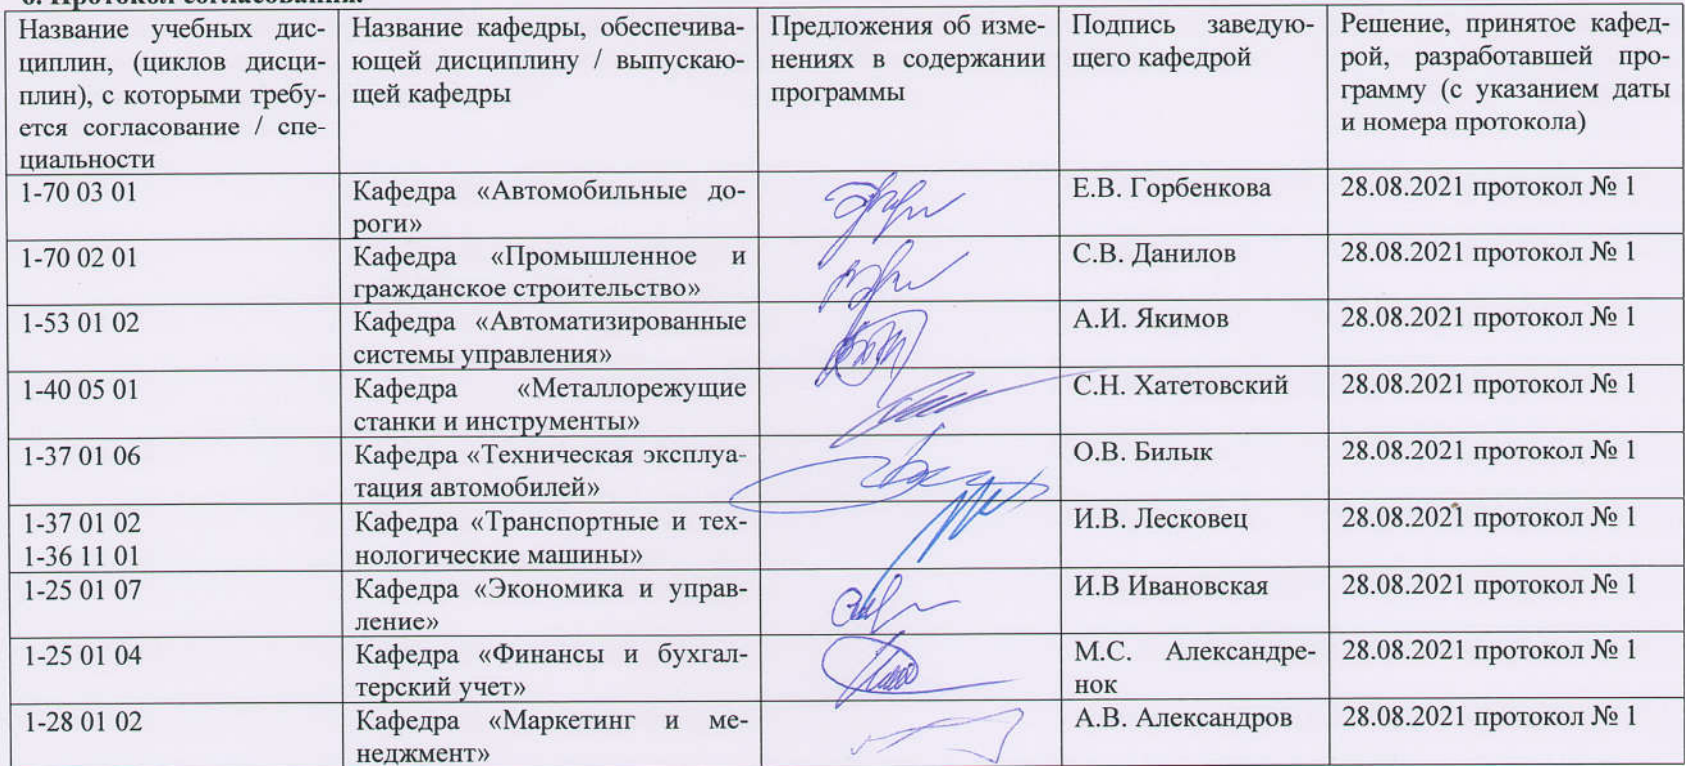 6. Протокол согласования.
Название учебных дис-
циплин, (циклов дисци-
плин), с которыми требу-
ется согласование / спе-
циальности
Название кафедры, обеспечива-
ющей дисциплину / выпускаю-
щей кафедры
Предложения об изме-
нениях в содержании
программы
Подпись заведую-
щего кафедрой
Решение, принятое кафед-
рой, разработавшей про-
грамму (с указанием даты
и номера протокола)
1-70 03 01
Кафедра «Автомобильные до-
роги»
Е.В. Горбенкова
28.08.2021 протокол № 1
1-70 02 01
Кафедра «Промышленное и
гражданское строительство»
С.В. Данилов
28.08.2021 протокол № 1
1-53 01 02
Кафедра «Автоматизированные
системы управления»
А.И. Якимов
28.08.2021 протокол № 1
1-40 05 01
Кафедра «Металлорежущие
станки и инструменты»
С.Н. Хатетовский
28.08.2021 протокол № 1
1-37 01 06
Кафедра «Техническая эксплуа-
тация автомобилей»
О.В. Билык
28.08.2021 протокол № 1
1-37 01 02
1-36 11 01
Кафедра «Транспортные и тех-
нологические машины»
И.В. Лесковец
28.08.2021 протокол № 1
1-25 01 07
Кафедра «Экономика и управ-
ление»
И.В Ивановская
28.08.2021 протокол № 1
1-25 01 04
Кафедра «Финансы и бухгал-
терский учет»
М.С. Александре-
нок
28.08.2021 протокол № 1
1-28 01 02
Кафедра «Маркетинг и ме-
неджмент»
А.В. Александров
28.08.2021 протокол № 1